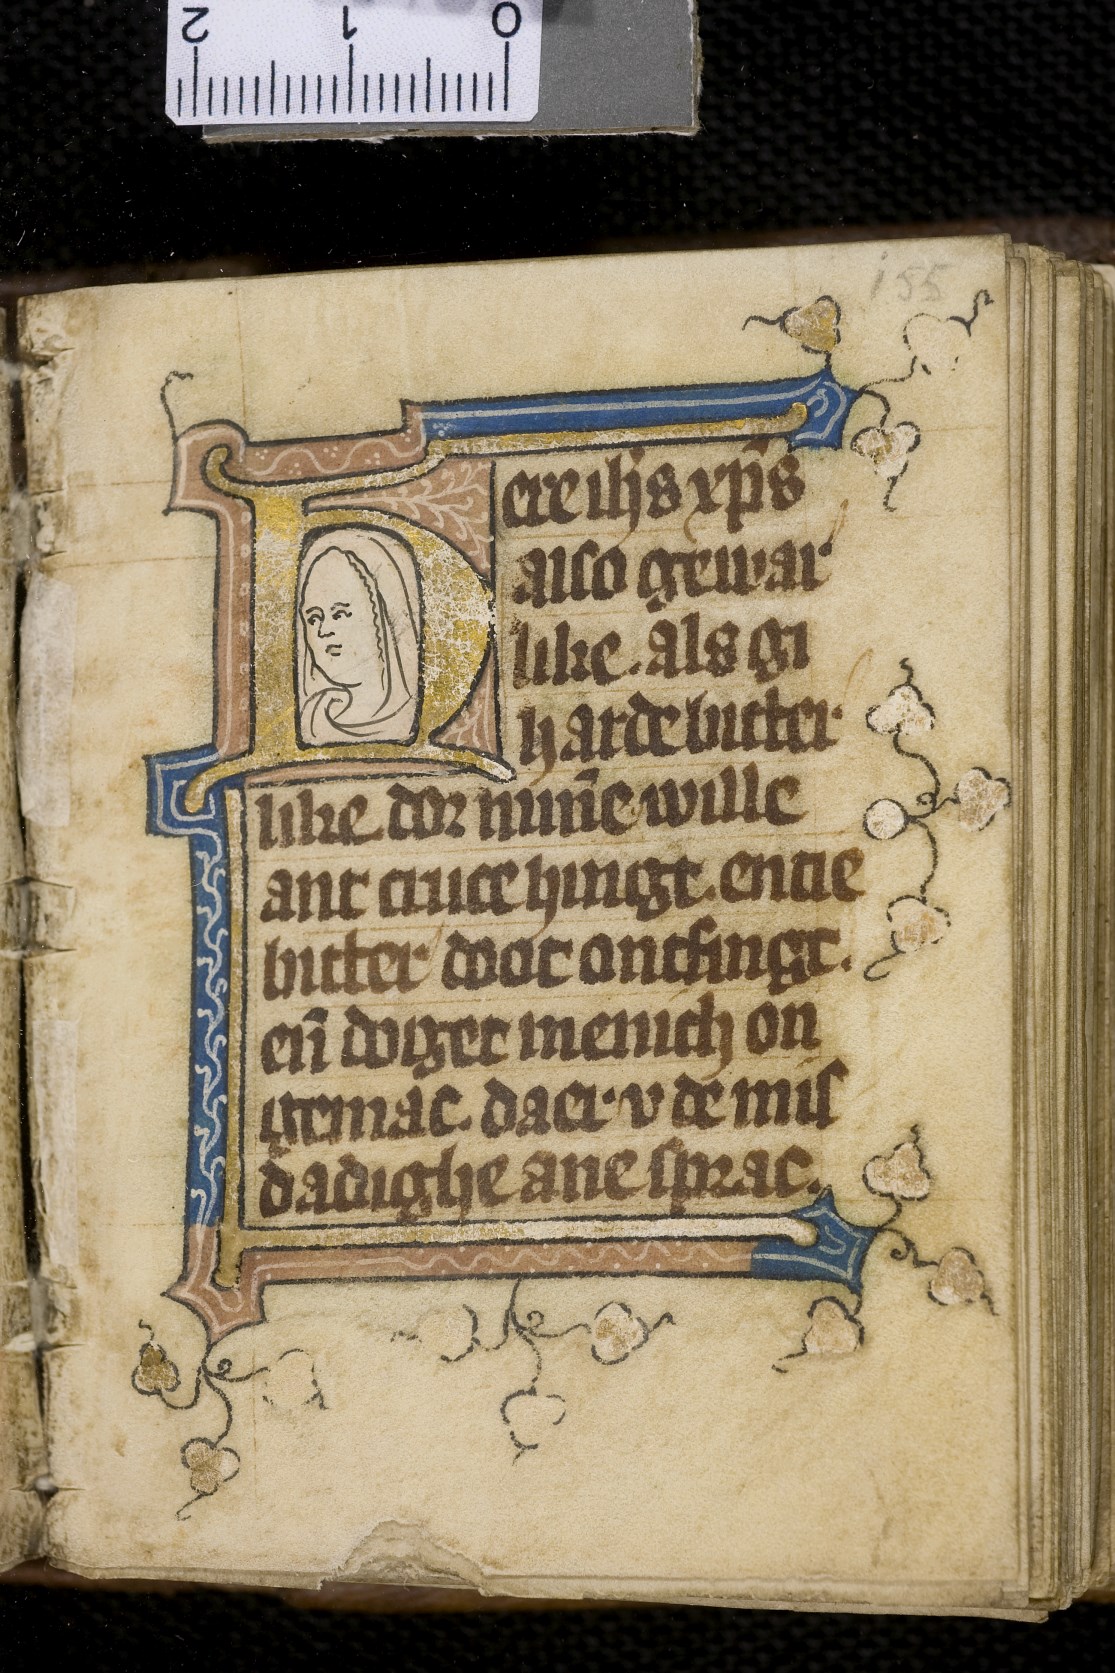 2 1 0
155
Here ih̅s xp̅s
also gewar
like. als gi
harde bitter
like. dor min̅e wille
ant cruce hingt. entie
bitter doot ontfingt.
en̅ doget menich on
gemac. daer v de mis
dadighe ane sprac.